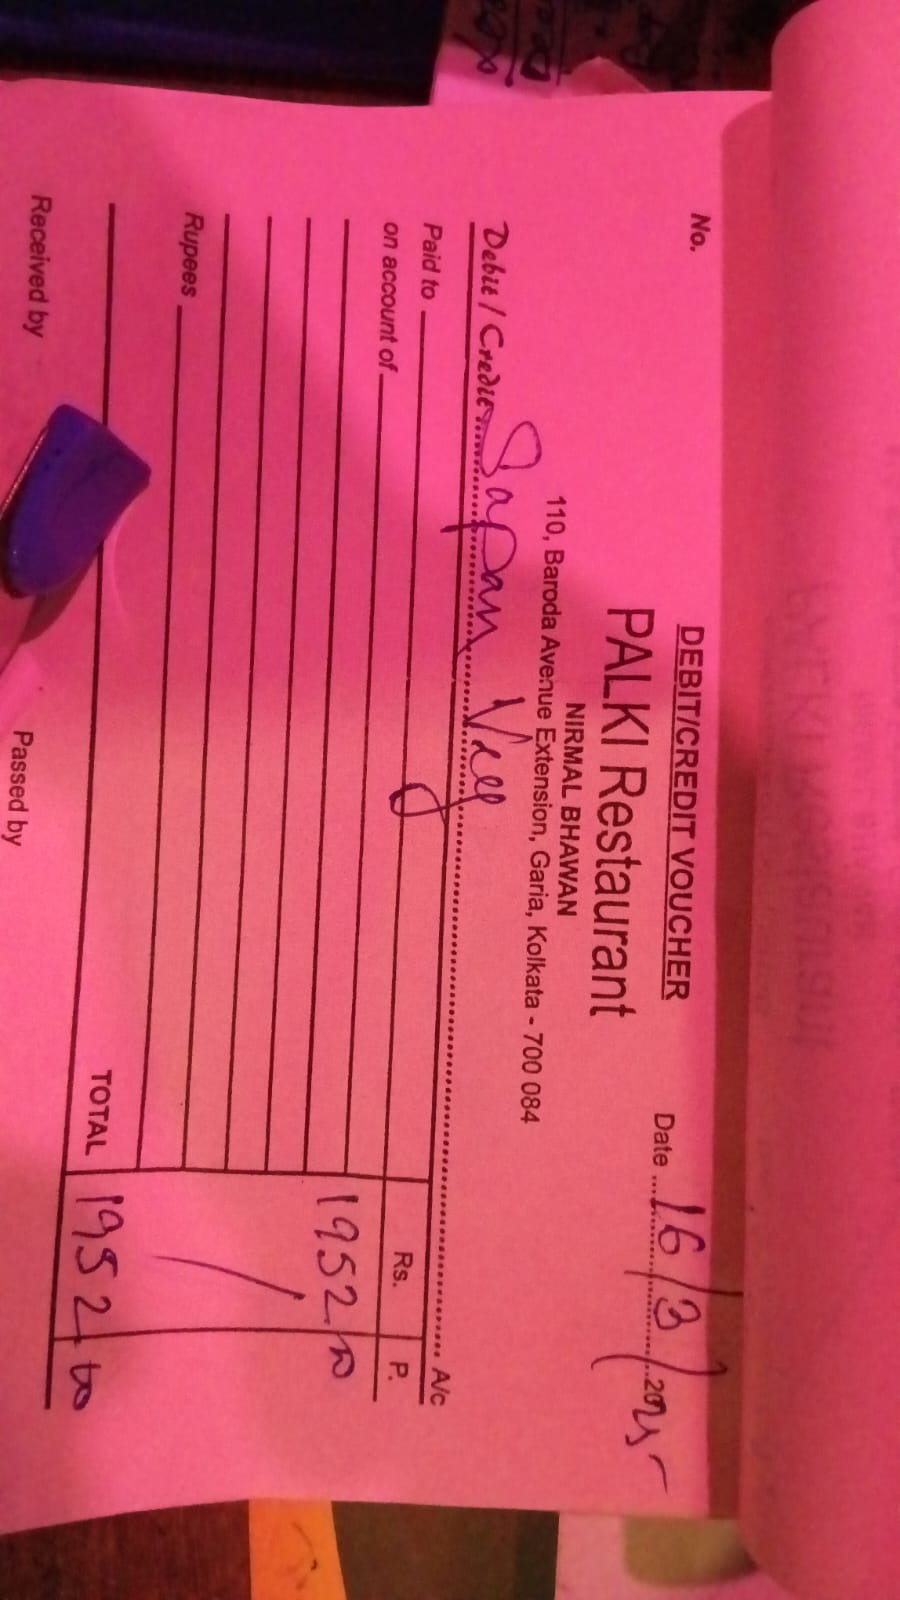 DEBIT/CREDIT VOUCHER
No. Date 16/3/2025
PALKI Restaurant
NIRMAL BHAWAN
110, Baroda Avenue Extension, Garia, Kolkata - 700 084
Debit / Credit Sapan Veg A/c
Paid to Rs. P.
on account of
1952 00
Rupees
TOTAL 1952 00
Received by Passed by